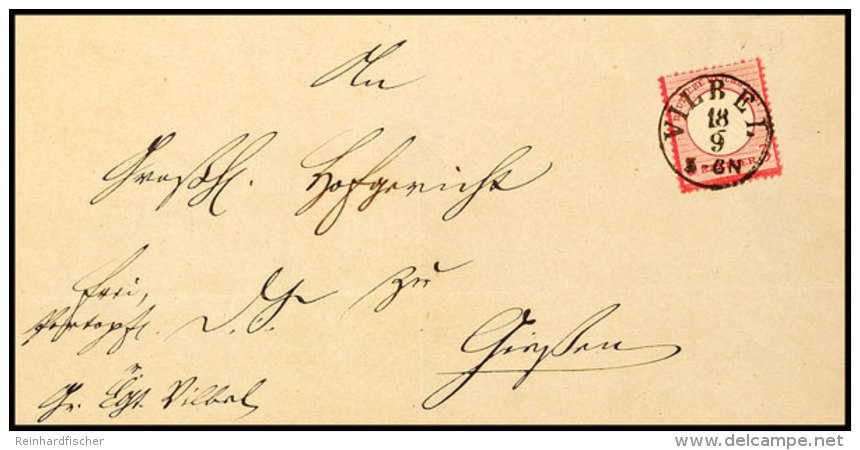 An
VILBEL
18
9
5-6N
KREUZER
Großh. Hofgericht
frei,
Portopfl. D. S. zu
Gießen
Gr. Lgt. Vilbel
Reinhardfischer
www.delcampe.net